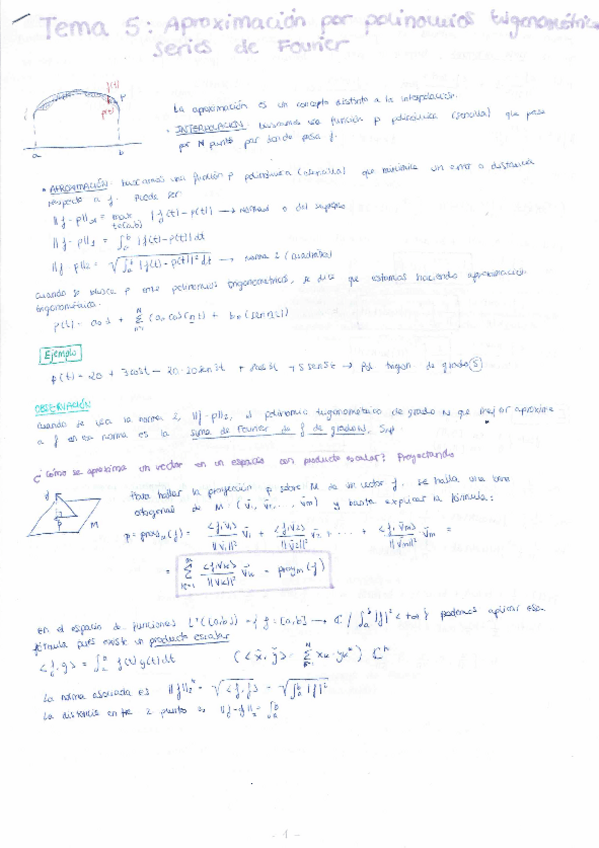 Tema 5: Aproximación por polinomios trigonométric
series de Fourier
La aproximación es un concepto distinto a la interpolación.
• INTERPOLACIÓN: buscamos una función p polinómica (sencilla) que pasa
por N puntos por donde pasa f.
a b
• APROXIMACIÓN: buscamos una función p polinómica (sencilla) que minimice un error o distancia
respecto a f. Puede ser
||f-p||∞ = max t∈(a,b) |f(t)-p(t)| → norma ∞ o del supremo
||f-p||₁ = ∫ₐᵇ |f(t)-p(t)| dt
||f-p||₂ = √(∫ₐᵇ |f(t)-p(t)|² dt) → norma 2 (cuadrática)
Cuando se busca p entre polinomios trigonométricos, se dice que estamos haciendo aproximación
trigonométrica.
Ejemplo
p(t) = 20 + 3cos t - 20 sen 3t + cos t + 5 sen 5t → pol. trigon. de grado 5
OBSERVACIÓN
Cuando se usa la norma 2, ||f-p||₂, el polinomio trigonométrico de grado N que mejor aproxime
a f en esa norma es la suma de Fourier de f de grado N,
¿Cómo se aproxima un vector en un espacio con producto escalar? Proyectando
f p M
Para hallar la proyección p sobre M de un vector f, se halla una base
ortogonal de M: (v₁, v₂, ..., vₘ) y basta aplicar la fórmula:
p = proyₘ(f) = <f,v₁>/||v₁||² v₁ + <f,v₂>/||v₂||² v₂ + ... + <f,vₘ>/||vₘ||² vₘ =
= Σ <f,vₖ>/||vₖ||² vₖ = proyₘ(f)
En el espacio de funciones L²([a,b]) = {f: [a,b] → C / ∫ₐᵇ |f|² < +∞} podemos aplicar esa
fórmula pues existe un producto escalar
La norma asociada es ||f||₂ = √<f,f> = √(∫ₐᵇ |f|²)
La distancia entre 2 puntos
- 1 -